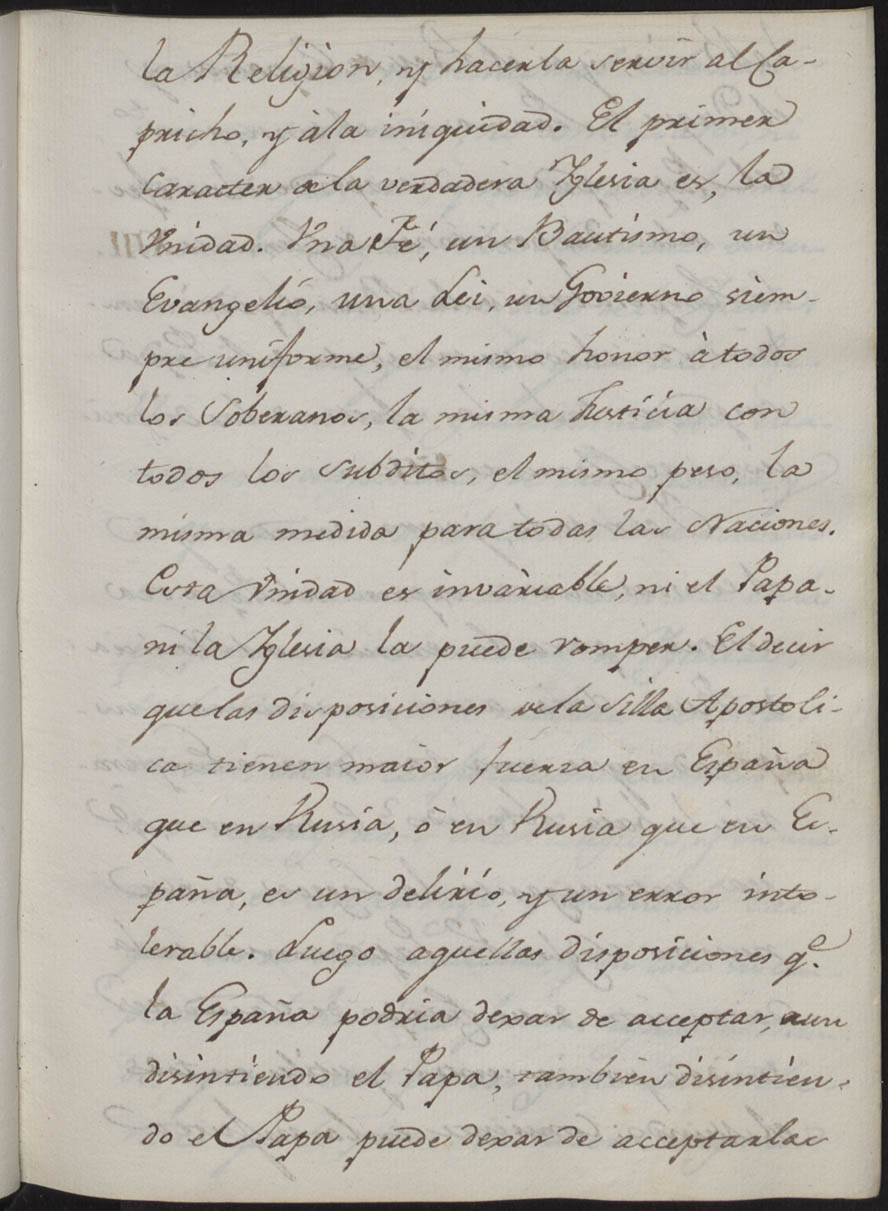 la Religion, y hacerla servir al Ca-
pricho, y à la iniquidad. El primer
caracter de la verdadera Yglesia es, la
Vnidad. Vna Fé, un Bautismo, un
Evangelio, una Lei, un Govierno siem-
pre uniforme, el mismo honor à todos
los Soberanos, la misma Justicia con
todos los subditos, el mismo peso, la
misma medida para todas las Naciones.
Esta Vnidad es invariable, ni el Papa.
ni la Yglesia la puede romper. El decir
que las disposiciones de la Silla Apostoli-
ca tienen maior fuerza en España
que en Rusia, ò en Rusia que en Es-
paña, es un delirio, y un error into-
lerable. Luego aquellas disposiciones q.e
la España podria dexar de acceptar, aun
disintiendo el Papa, tambien disintien-
do el Papa puede dexar de acceptarlas